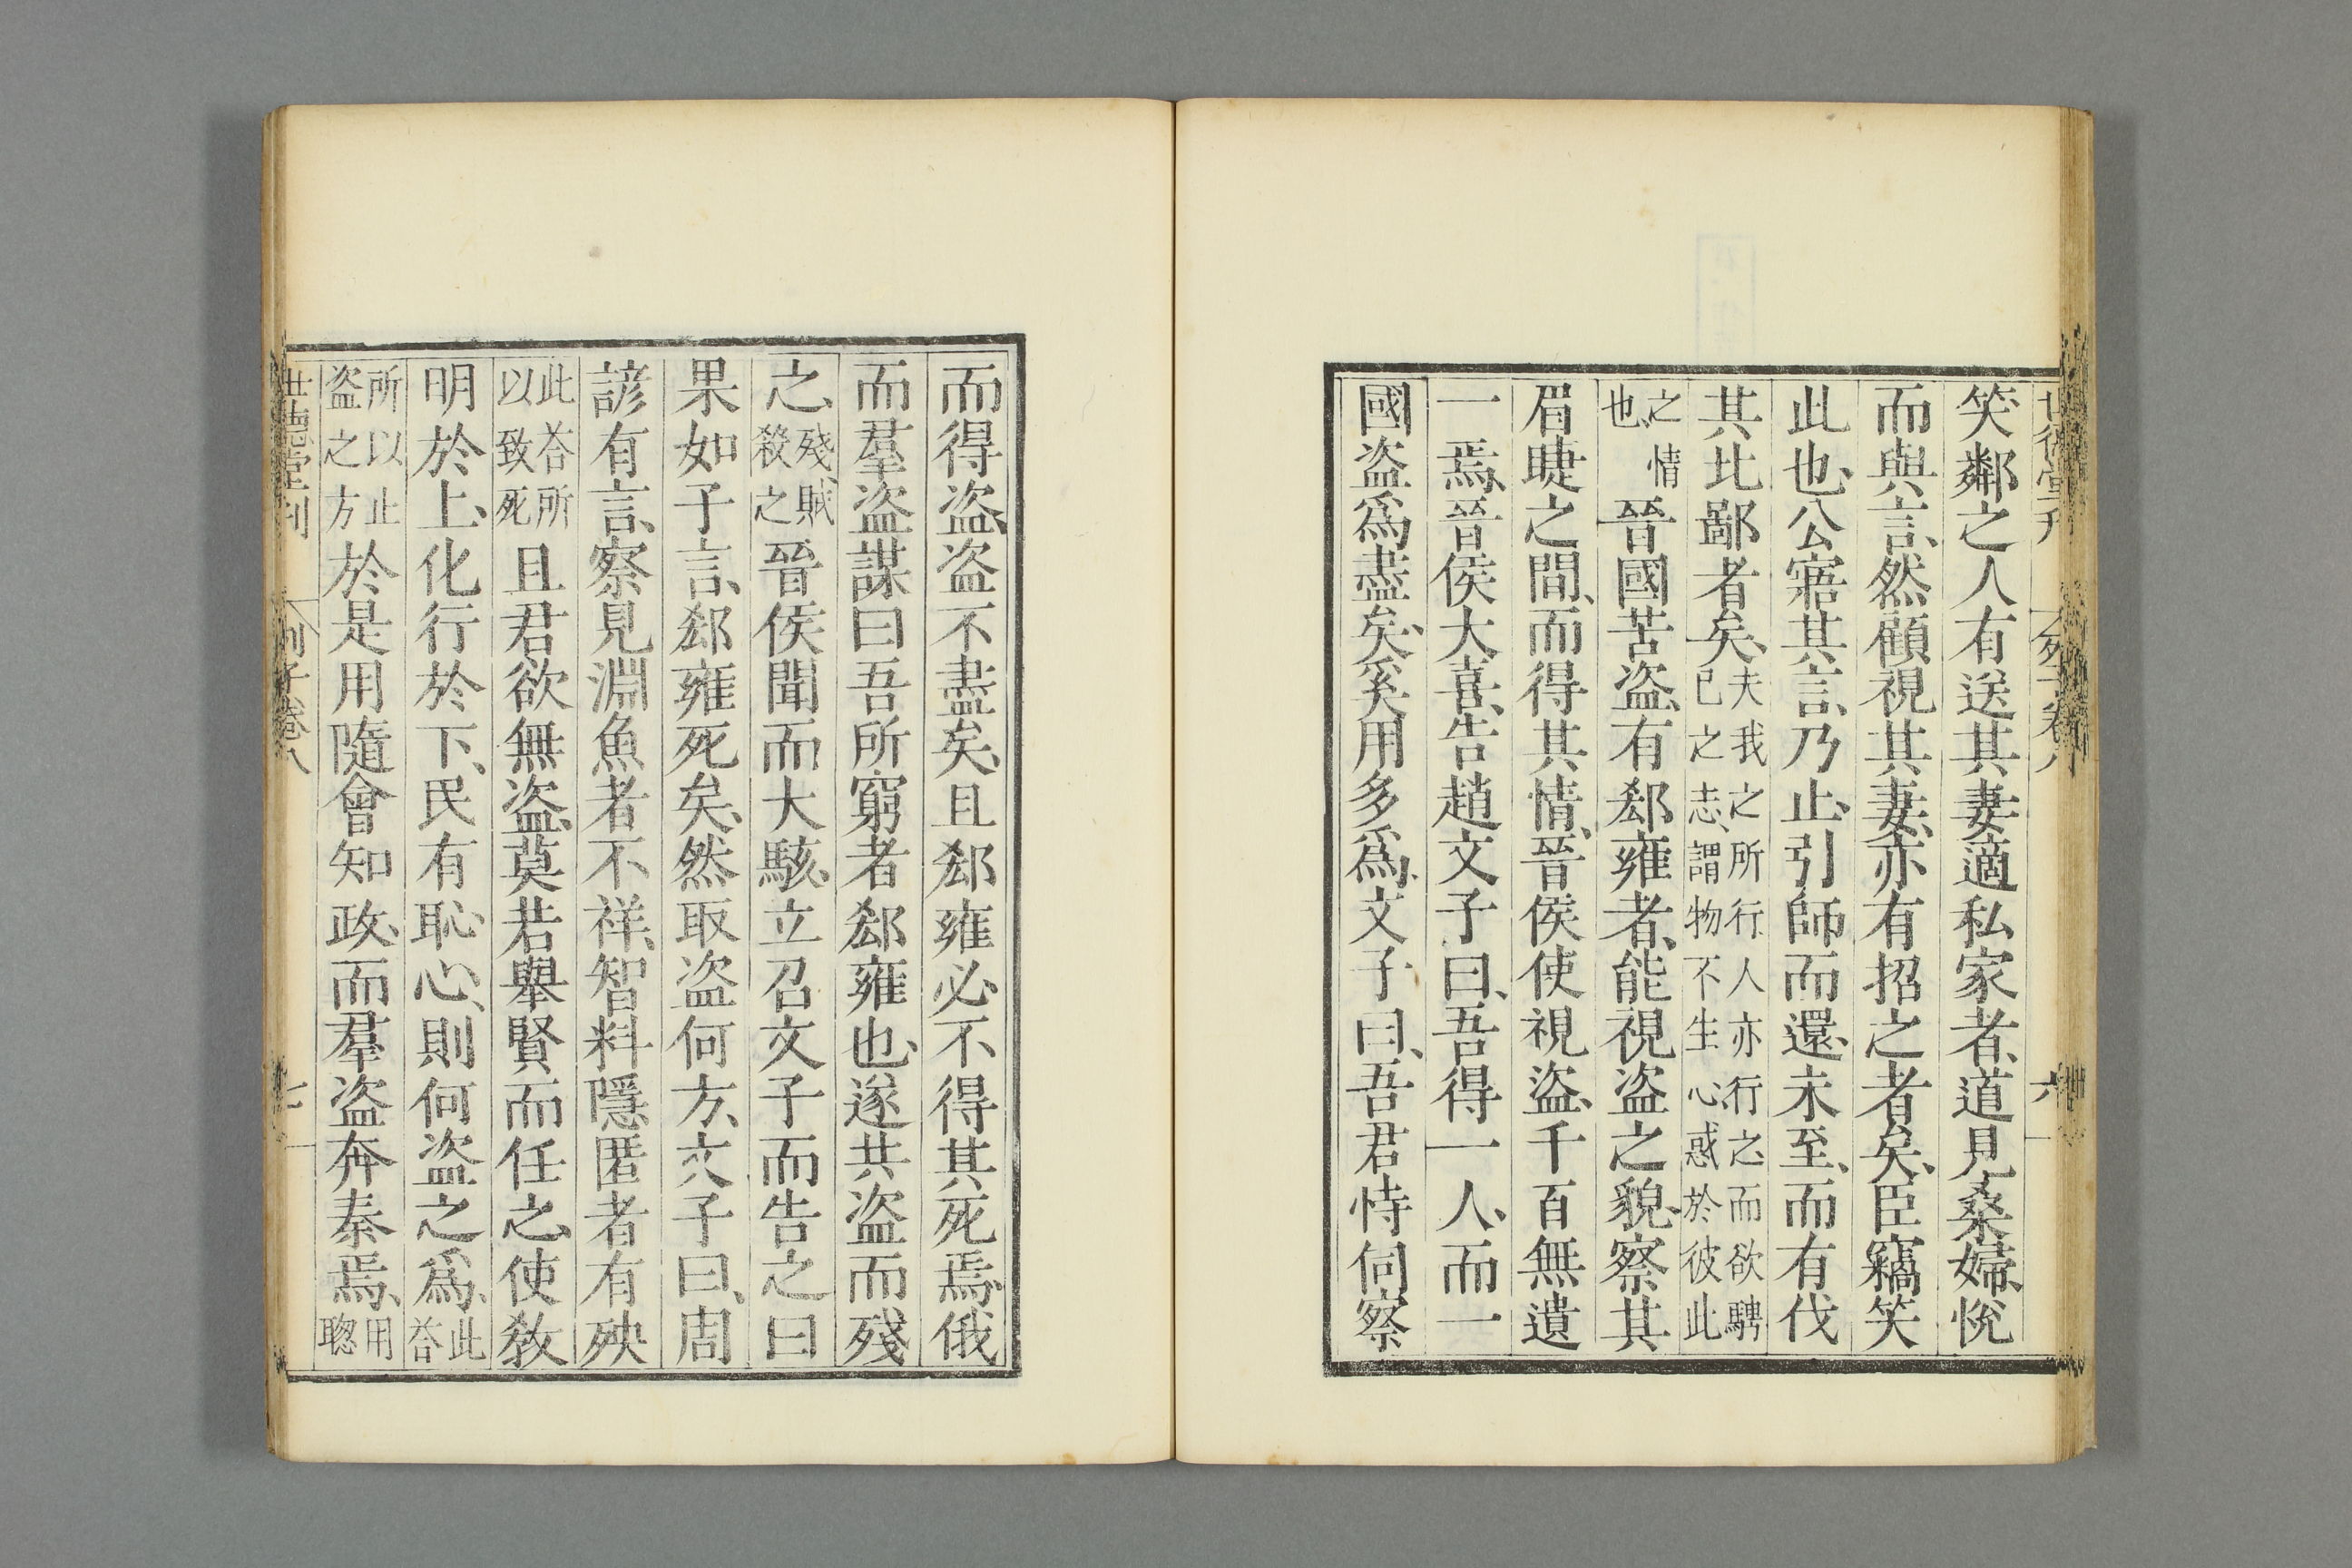 笑鄰之人有送其妻適私家者、道見桑婦、悅
而與言、然顧視其妻、亦有招之者矣、臣竊笑
此也、公寤其言、乃止、引師而還、未至、而有伐
其北鄙者矣、夫我之所行、人亦行之、而欲騁
己之志、謂物不生心、惑於彼此
之情
也、晉國苦盗、有郄雍者、能視盗之貌、察其
眉睫之間、而得其情、晉侯使視盗、千百無遺
一焉、晉侯大喜、告趙文子曰、吾得一人、而一
國盗爲盡矣、奚用多爲、文子曰、吾君恃伺察
而得盗、盗不盡矣、且郄雍必不得其死焉、俄
而羣盗謀曰吾所窮者郄雍也、遂共盗而殘
之、殘、賊
殺之晉侯聞而大駭、立召文子而告之曰
果如子言、郄雍死矣、然取盗何方、文子曰、周
諺有言、察見淵魚者不祥、智料隱匿者有殃
此荅所
以致死且君欲無盗、莫若舉賢而任之、使敎
明於上、化行於下、民有恥心、則何盗之爲、此
荅
所以止
盗之方於是用隨會知政、而羣盗奔秦焉、用
聰
世德堂刊
列子卷八
七
六